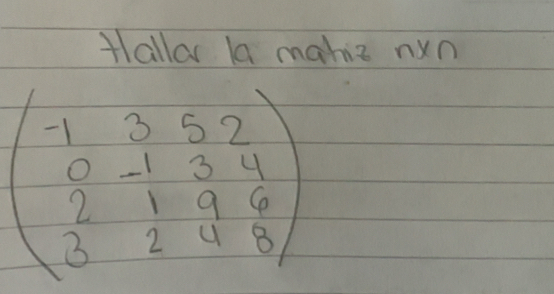 Hallar la matriz nxn
-1 3 5 2
0 -1 3 4
2 1 9 6
3 2 4 8